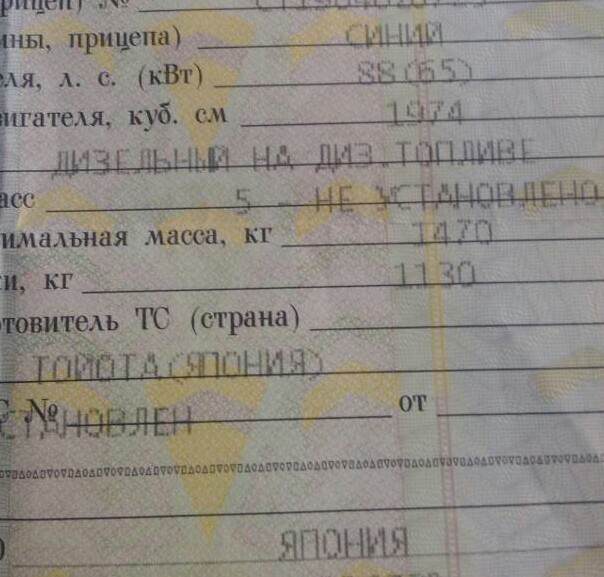 рицеп) №
ины, прицепа) СИНИЙ
еля, л. с. (кВт) 88(65)
вигателя, куб. см 1974
ДИЗЕЛЬНЫЙ НА ДИЗ.ТОПЛИВЕ
асс 5 - НЕ УСТАНОВЛЕНО
имальная масса, кг 1470
и, кг 1130
отовитель ТС (страна)
ТОЙОТА(ЯПОНИЯ)
С №
от
СТАНОВЛЕН
ЯПОНИЯ